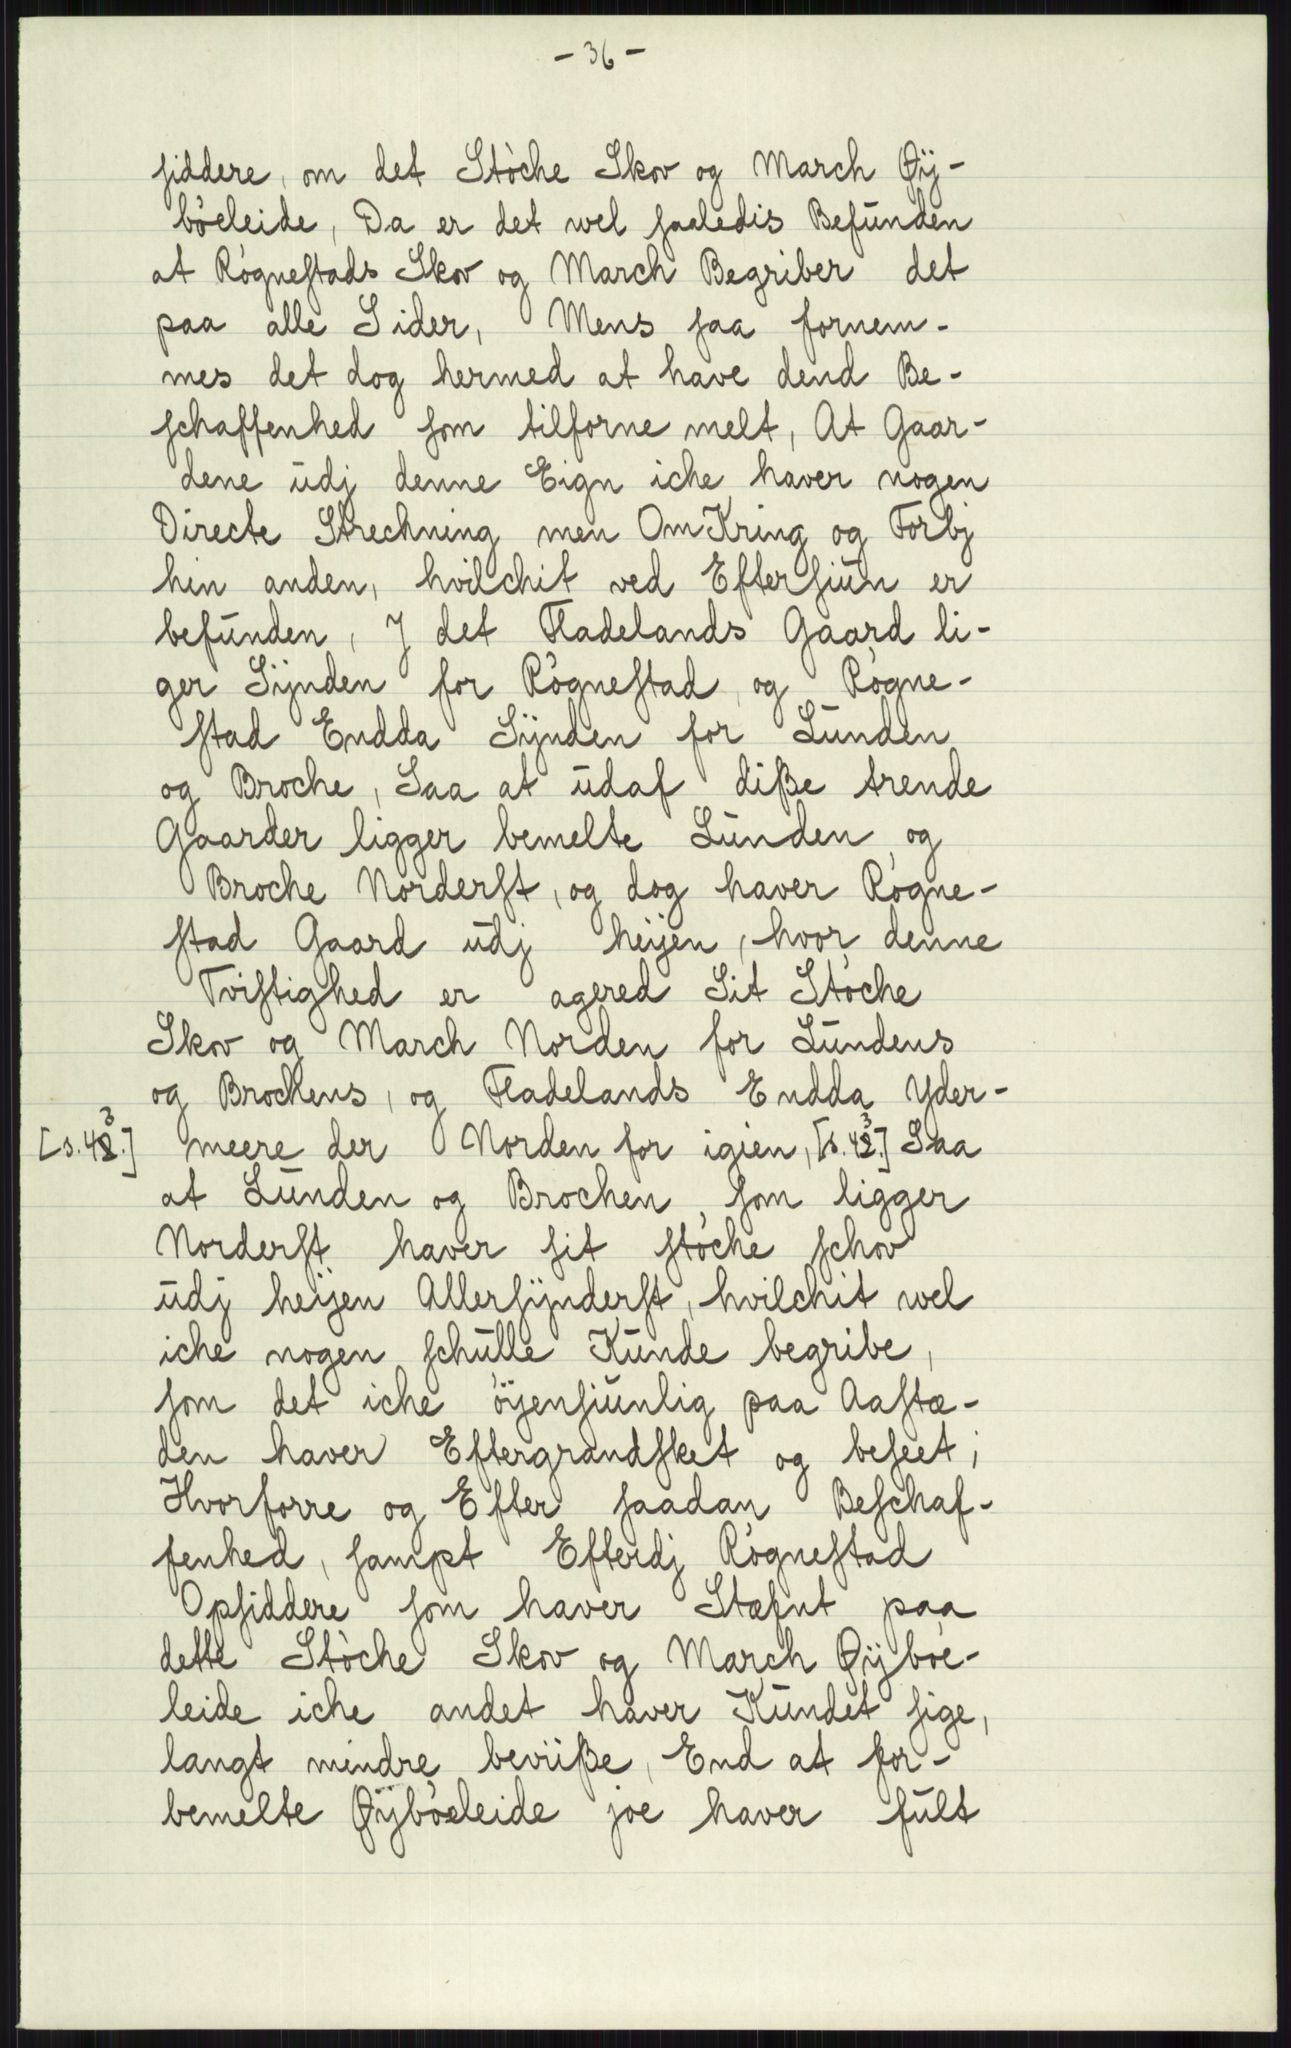 - 36 -
siddere, om det Støche Skov og March Øÿ-
bøeleide, Da er det wel saaledis Befunden
at Røgnestads Skov og March Begriber det
paa alle Sider, Mens saa fornem-
mes det dog hermed at have dend Be-
schaffenhed som tilforne melt, At Gaar-
dene udj denne Eign iche haver nogen
Directe Strechning men OmKring og Forbj
hin anden, hvilchit ved Eftersiun er
befunden, J det Fladelands Gaard li-
ger Sÿnden for Røgnestad, og Røgne-
stad Endda Sÿnden for Lunden
og Broche, Saa at udaf diße trende
Gaarder ligger bemelte Lunden og
Broche Norderst, og dog haver Røgne-
stad Gaard udj heijen, hvor denne
Tvistighed er agered Sit Støche
Skov og March Norden for Lundens
og Brochens, og Fladelands Endda Yder-
[s. 423.] meere der Norden for igien, [s. 423.] Saa
at Lunden og Brochen som ligger
Norderst haver sit støche schov
udj heijen Allersÿnderst, hvilchit wel
iche nogen schulle Kunde begribe,
som det iche öÿensiunlig paa Aastæ-
den haver Eftergrandsket og beseet;
Hvorforre og Efter saadan Beschaf-
fenhed, sampt Efterdj Røgnestad
Opsiddere som haver Stæfnt paa
dette Støche Skov og March Øÿbøe-
leide iche andet haver Kundet sige,
langt mindre beviiße, End at for-
bemelte Øÿbøeleide joe haver fult